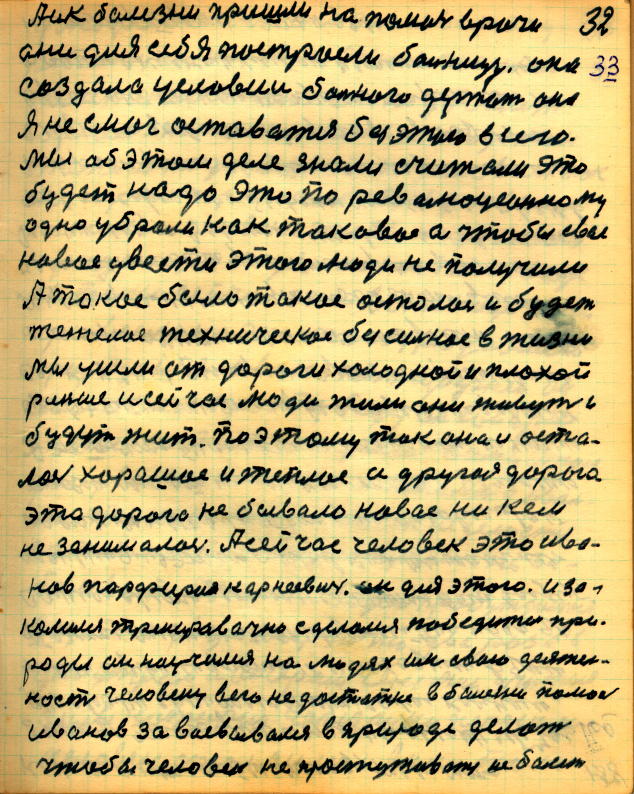 Аик болезни пришли на помоч врачи 32
ани для себя построели болницу. она 33
создала условии болного держат она
Я не смог оставатся без этого всего.
мы об этом деле знали считали это
будет надо это по
одно убрали как таковое а чтобы свае
навое ввести этого люди не получили
А такое было такое осталос и будет
тежелое техническое безсилное в жизни
мы ушли от дороги холодной и плохой
раньше и сейчас люди жили они живут и
будут жит. поэтому так она и оста-
лос хорошое и теплое а другая дорога
эта дорога не бывало новае ни кем
не занималос. А сейчас человек это ива-
нов парфирия карнеевич. он для этого. и за-
калился тренировачно сделался победител при-
роды он научился на людях им свою деятел-
ност человеку всего недостатке в болезни помог
иванов завоевывался в природе делат
чтобы человек не простуживат не болет